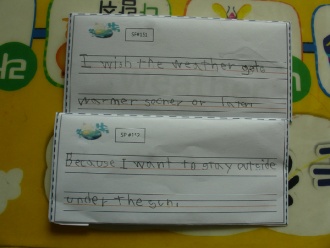 I wish the weather gets
warmer sooner or later
SP#173
Because I want to stay outside
under the sun.